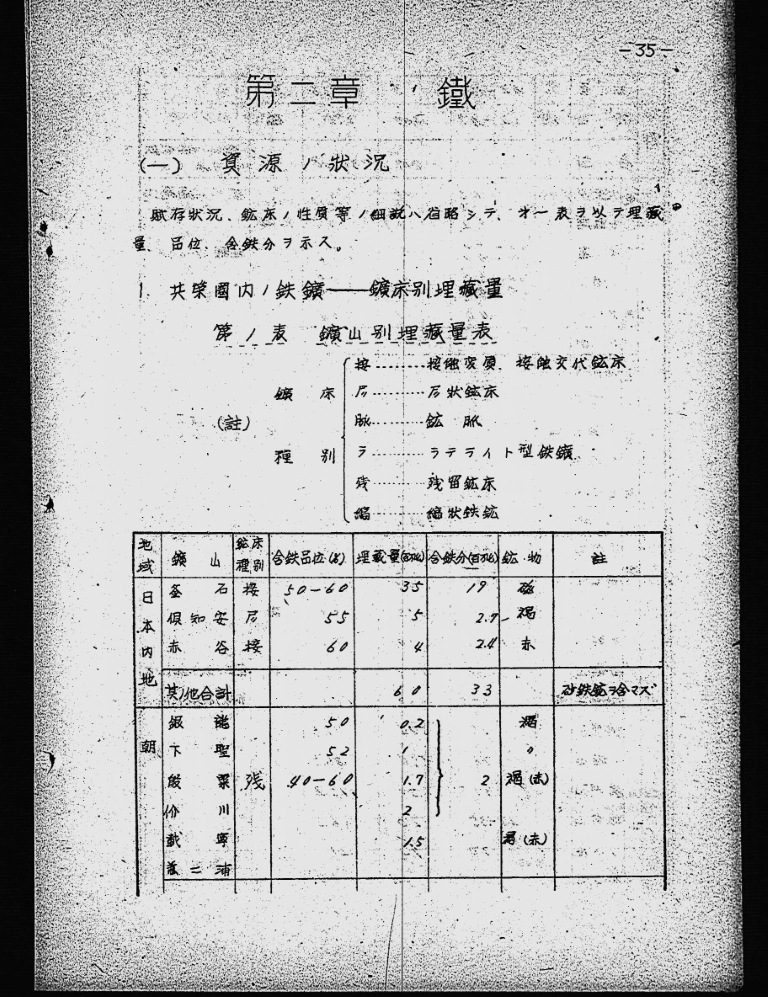 －35－
第二章 鐵
(一) 資源ノ状況
賦存状況、鉱床ノ性質等ノ細説ハ省略シテ、オ一表ヲ以テ埋蔵
量、品位、含鉄分ヲ示ス。
1 共榮國内ノ鉄鑛――鑛床別埋藏量
第1表 鑛山別埋藏量表
(註) 鑛床種別
接………接触変質、接触交代鉱床
层………层状鉱床
脈………鉱脈
ラ………ラテライト型鉄鑛
残………残留鉱床
縞………縞状鉄鉱
地域 鑛山 鉱床種別 含鉄品位(%) 埋蔵量(百万t) 含鉄分(百万t) 鉱物 註
日本内地 釜石 接 50－60 35 19 磁
倶知安 层 55 5 2.7 褐
赤谷 接 60 4 2.4 赤
其ノ他合計 60 33 砂鉄鉱ヲ含マズ
朝 銀龍 50 0.2 褐
下聖 52 1 〃
殷栗 残 40－60 1.7 2 褐(赤)
价川 2
載寧 1.5 褐(赤)
兼二浦